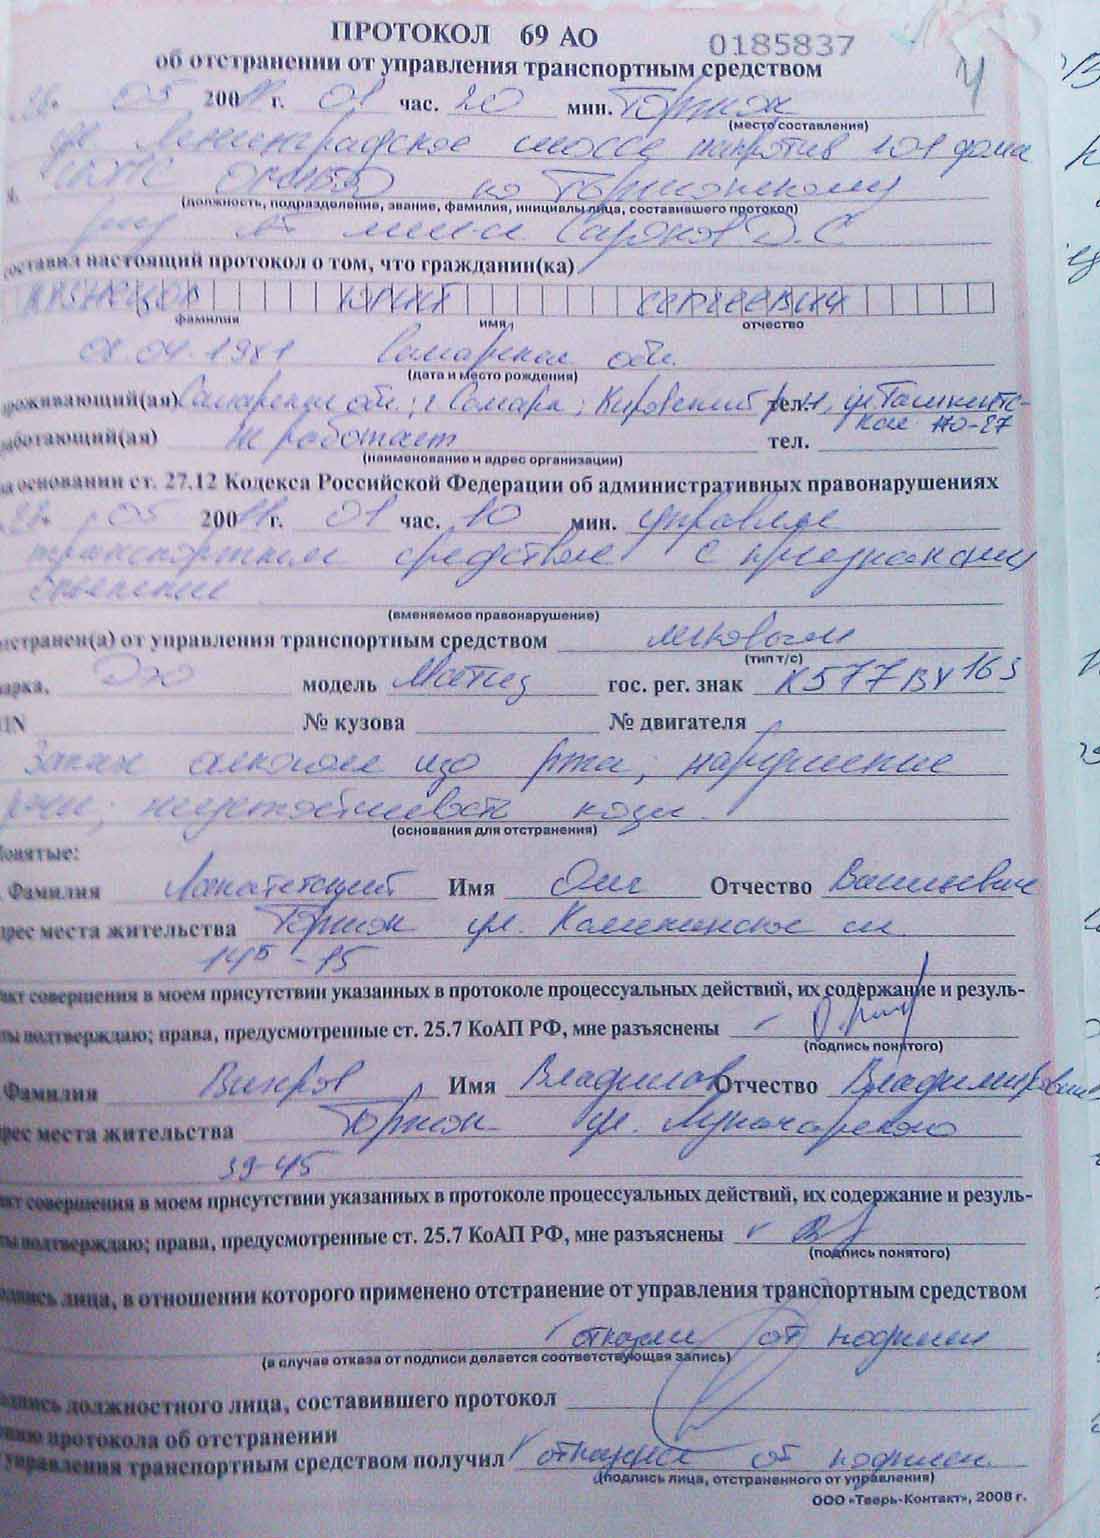 ПРОТОКОЛ 69 АО 0185837
об отстранении от управления транспортным средством
4
05 200 г. 01 час. 20 мин. Торжок
(место составления)
ул Ленинградское шоссе напротив 101 дома
по Торжокскому
(должность, подразделение, звание, фамилия, инициалы лица, составившего протокол)
Д.С
составил настоящий протокол о том, что гражданин(ка)
КУЗНЕЦОВ ЮРИЙ СЕРГЕЕВИЧ
фамилия имя отчество
08.04.1981 Самарская обл.
(дата и место рождения)
проживающий(ая) Самарская обл.; г Самара; Кировский р-н, ул. Ташкентс- тел.
кая 170-27
работающий(ая) не работает тел.
(наименование и адрес организации)
на основании ст. 27.12 Кодекса Российской Федерации об административных правонарушениях
05 200 г. 01 час. 10 мин. управлял
транспортным средством с признаками
опьянения
(вменяемое правонарушение)
отстранен(а) от управления транспортным средством легковым
(тип т/с)
марка, Дэо модель Матиз гос. рег. знак К577ВУ 163
VIN № кузова № двигателя
Запах алкоголя изо рта; нарушение
речи; неустойчивость позы.
(основания для отстранения)
Понятые:
Фамилия Имя Олег Отчество Васильевич
адрес места жительства Торжок ул. Калининское ш
145 -15
факт совершения в моем присутствии указанных в протоколе процессуальных действий, их содержание и резуль-
таты подтверждаю; права, предусмотренные ст. 25.7 КоАП РФ, мне разъяснены
(подпись понятого)
Фамилия Вихров Имя Владислав Отчество Владимирович
адрес места жительства Торжок ул. Луначарского
39-45
факт совершения в моем присутствии указанных в протоколе процессуальных действий, их содержание и резуль-
таты подтверждаю; права, предусмотренные ст. 25.7 КоАП РФ, мне разъяснены
(подпись понятого)
подпись лица, в отношении которого применено отстранение от управления транспортным средством
от подписи
(в случае отказа от подписи делается соответствующая запись)
подпись должностного лица, составившего протокол
копию протокола об отстранении
от управления транспортным средством получил отказался от подписи
(подпись лица, отстраненного от управления)
ООО «Тверь-Контакт», 2008 г.